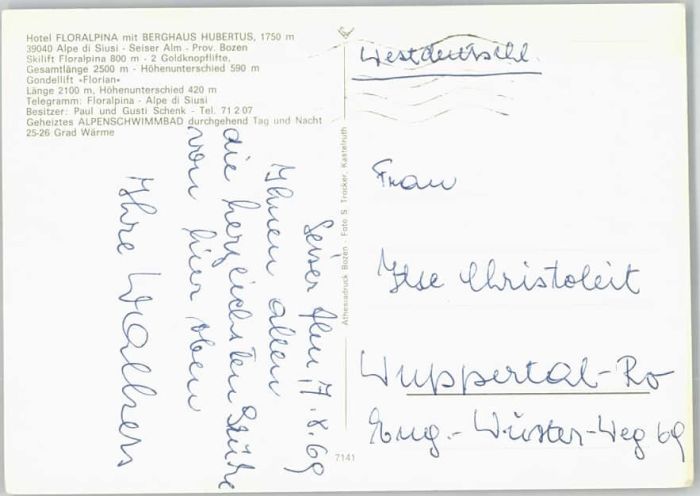 Hotel FLORALPINA mit BERGHAUS HUBERTUS, 1750 m
39040 Alpe di Siusi - Seiser Alm - Prov. Bozen
Skilift Floralpina 800 m - 2 Goldknopflifte,
Gesamtlänge 2500 m - Höhenunterschied 590 m
Gondellift «Florian»
Länge 2100 m, Höhenunterschied 420 m
Telegramm: Floralpina - Alpe di Siusi
Besitzer: Paul und Gusti Schenk - Tel. 71 2 07
Geheiztes ALPENSCHWIMMBAD durchgehend Tag und Nacht
25-26 Grad Wärme
Seiser Alm, 17.8.69
Ihnen allen
die herzlichsten Grüße
von hier oben
Ihre Walthers
Athesiadruck Bozen - Foto S. Trocker, Kastelruth
7141
Westdeutschl.
Frau
Ilse Christoleit
Wuppertal-Ro
Eug.-Wüster-Weg 69